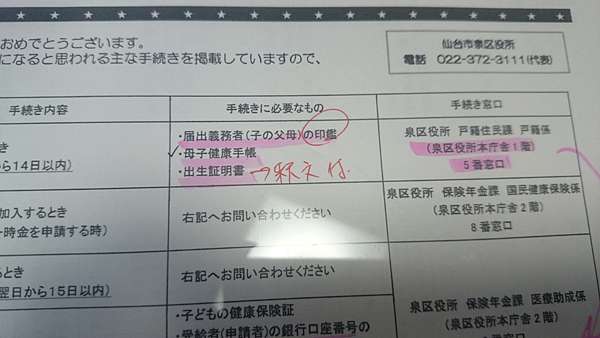 おめでとうございます。
になると思われる主な手続きを掲載していますので、
仙台市泉区役所
電話 022-372-3111(代表)
手続き内容
手続きに必要なもの
手続き窓口
き
から14日以内)
・届出義務者(子の父母)の印鑑
✓・母子健康手帳
・出生証明書 →訳文 は
泉区役所 戸籍住民課 戸籍係
(泉区役所本庁舎1階)
5番窓口
加入するとき
一時金を申請する時)
右記へお問い合わせください
泉区役所 保険年金課 国民健康保険係
(泉区役所本庁舎2階)
8番窓口
るとき
翌日から15日以内)
右記へお問い合わせください
・子どもの健康保険証
・受給者(申請者)の銀行口座番号の
泉区役所 保険年金課 医療助成係
(泉区役所本庁舎2階)